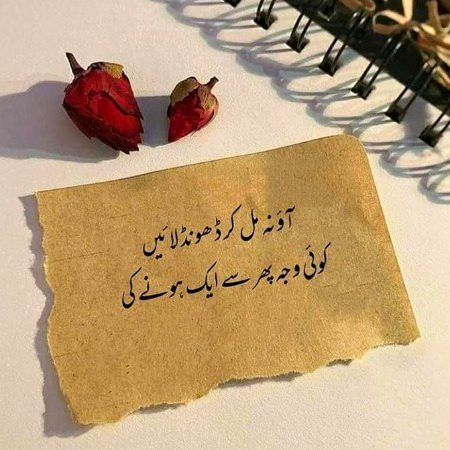 آؤ نہ مل کر ڈھونڈ لائیں
کوئی وجہ پھر سے ایک ہونے کی